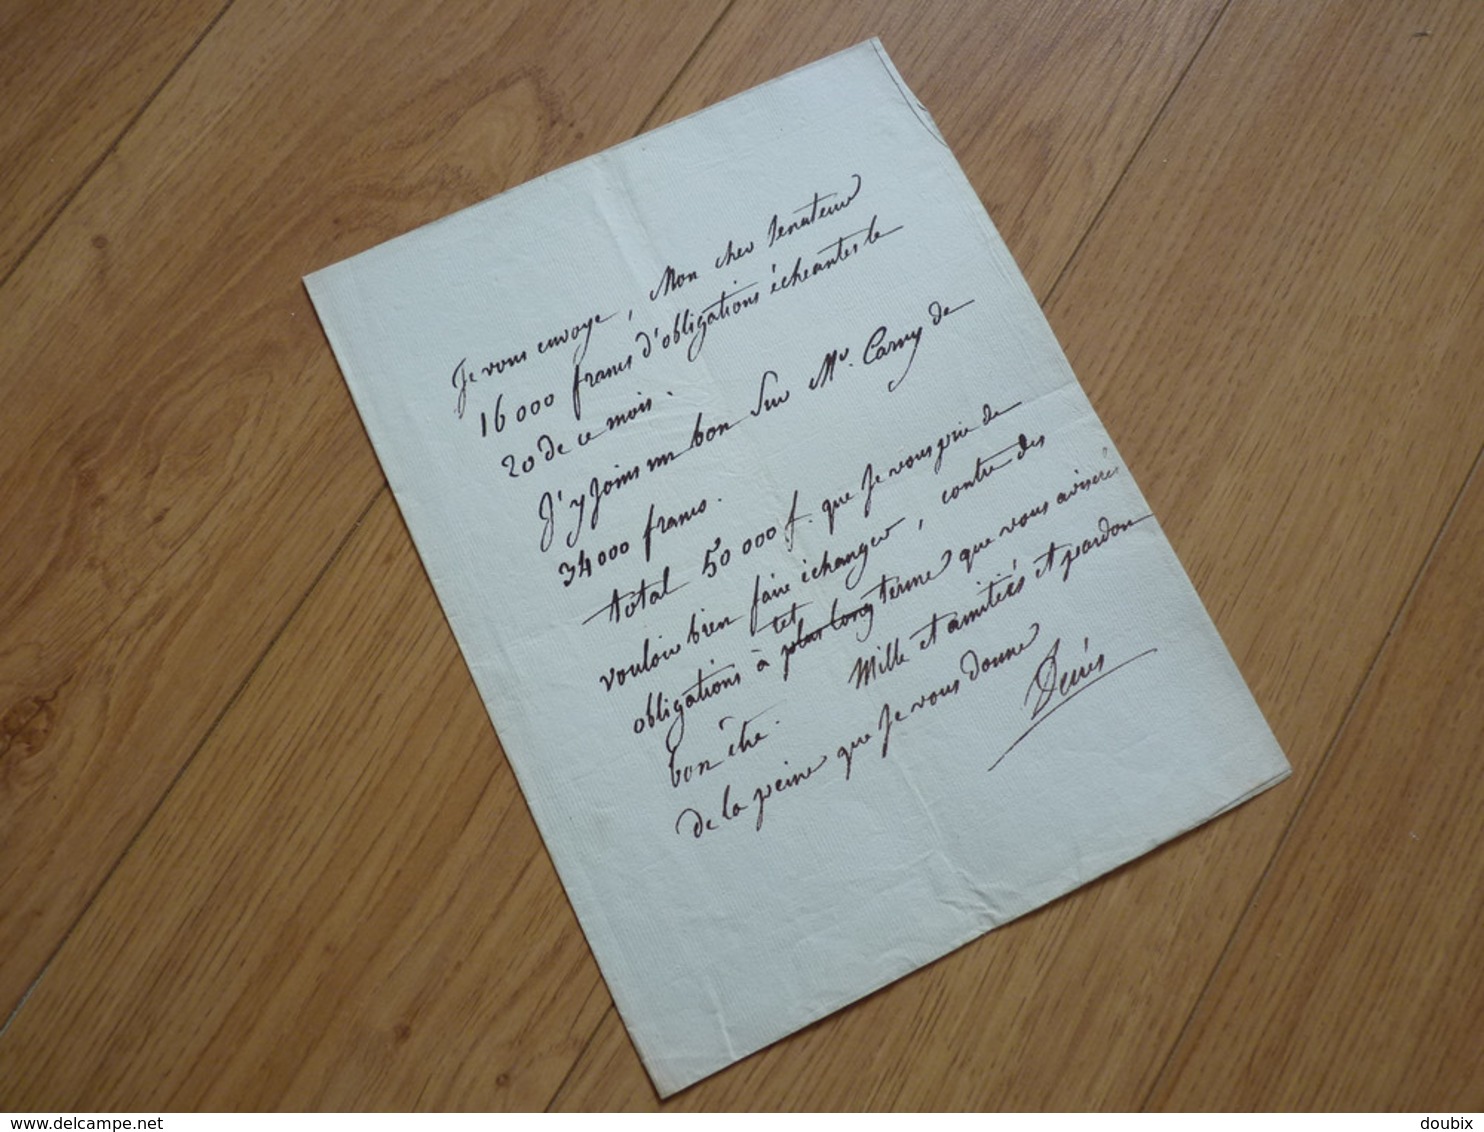 Je vous envoye, Mon cher Senateur
16000 francs d'obligations écheantes le
20 de ce mois.
J'y Joins un bon Sur Mr. Carny de
34000 francs.
total 50000 f. que Je vous prie de
vouloir bien faire échanger, contre des
tet
obligations à plus long terme que vous aviserés
bon être. Mille et amitiés et pardon
de la peine que Je vous donne
delcampe.net
doubix